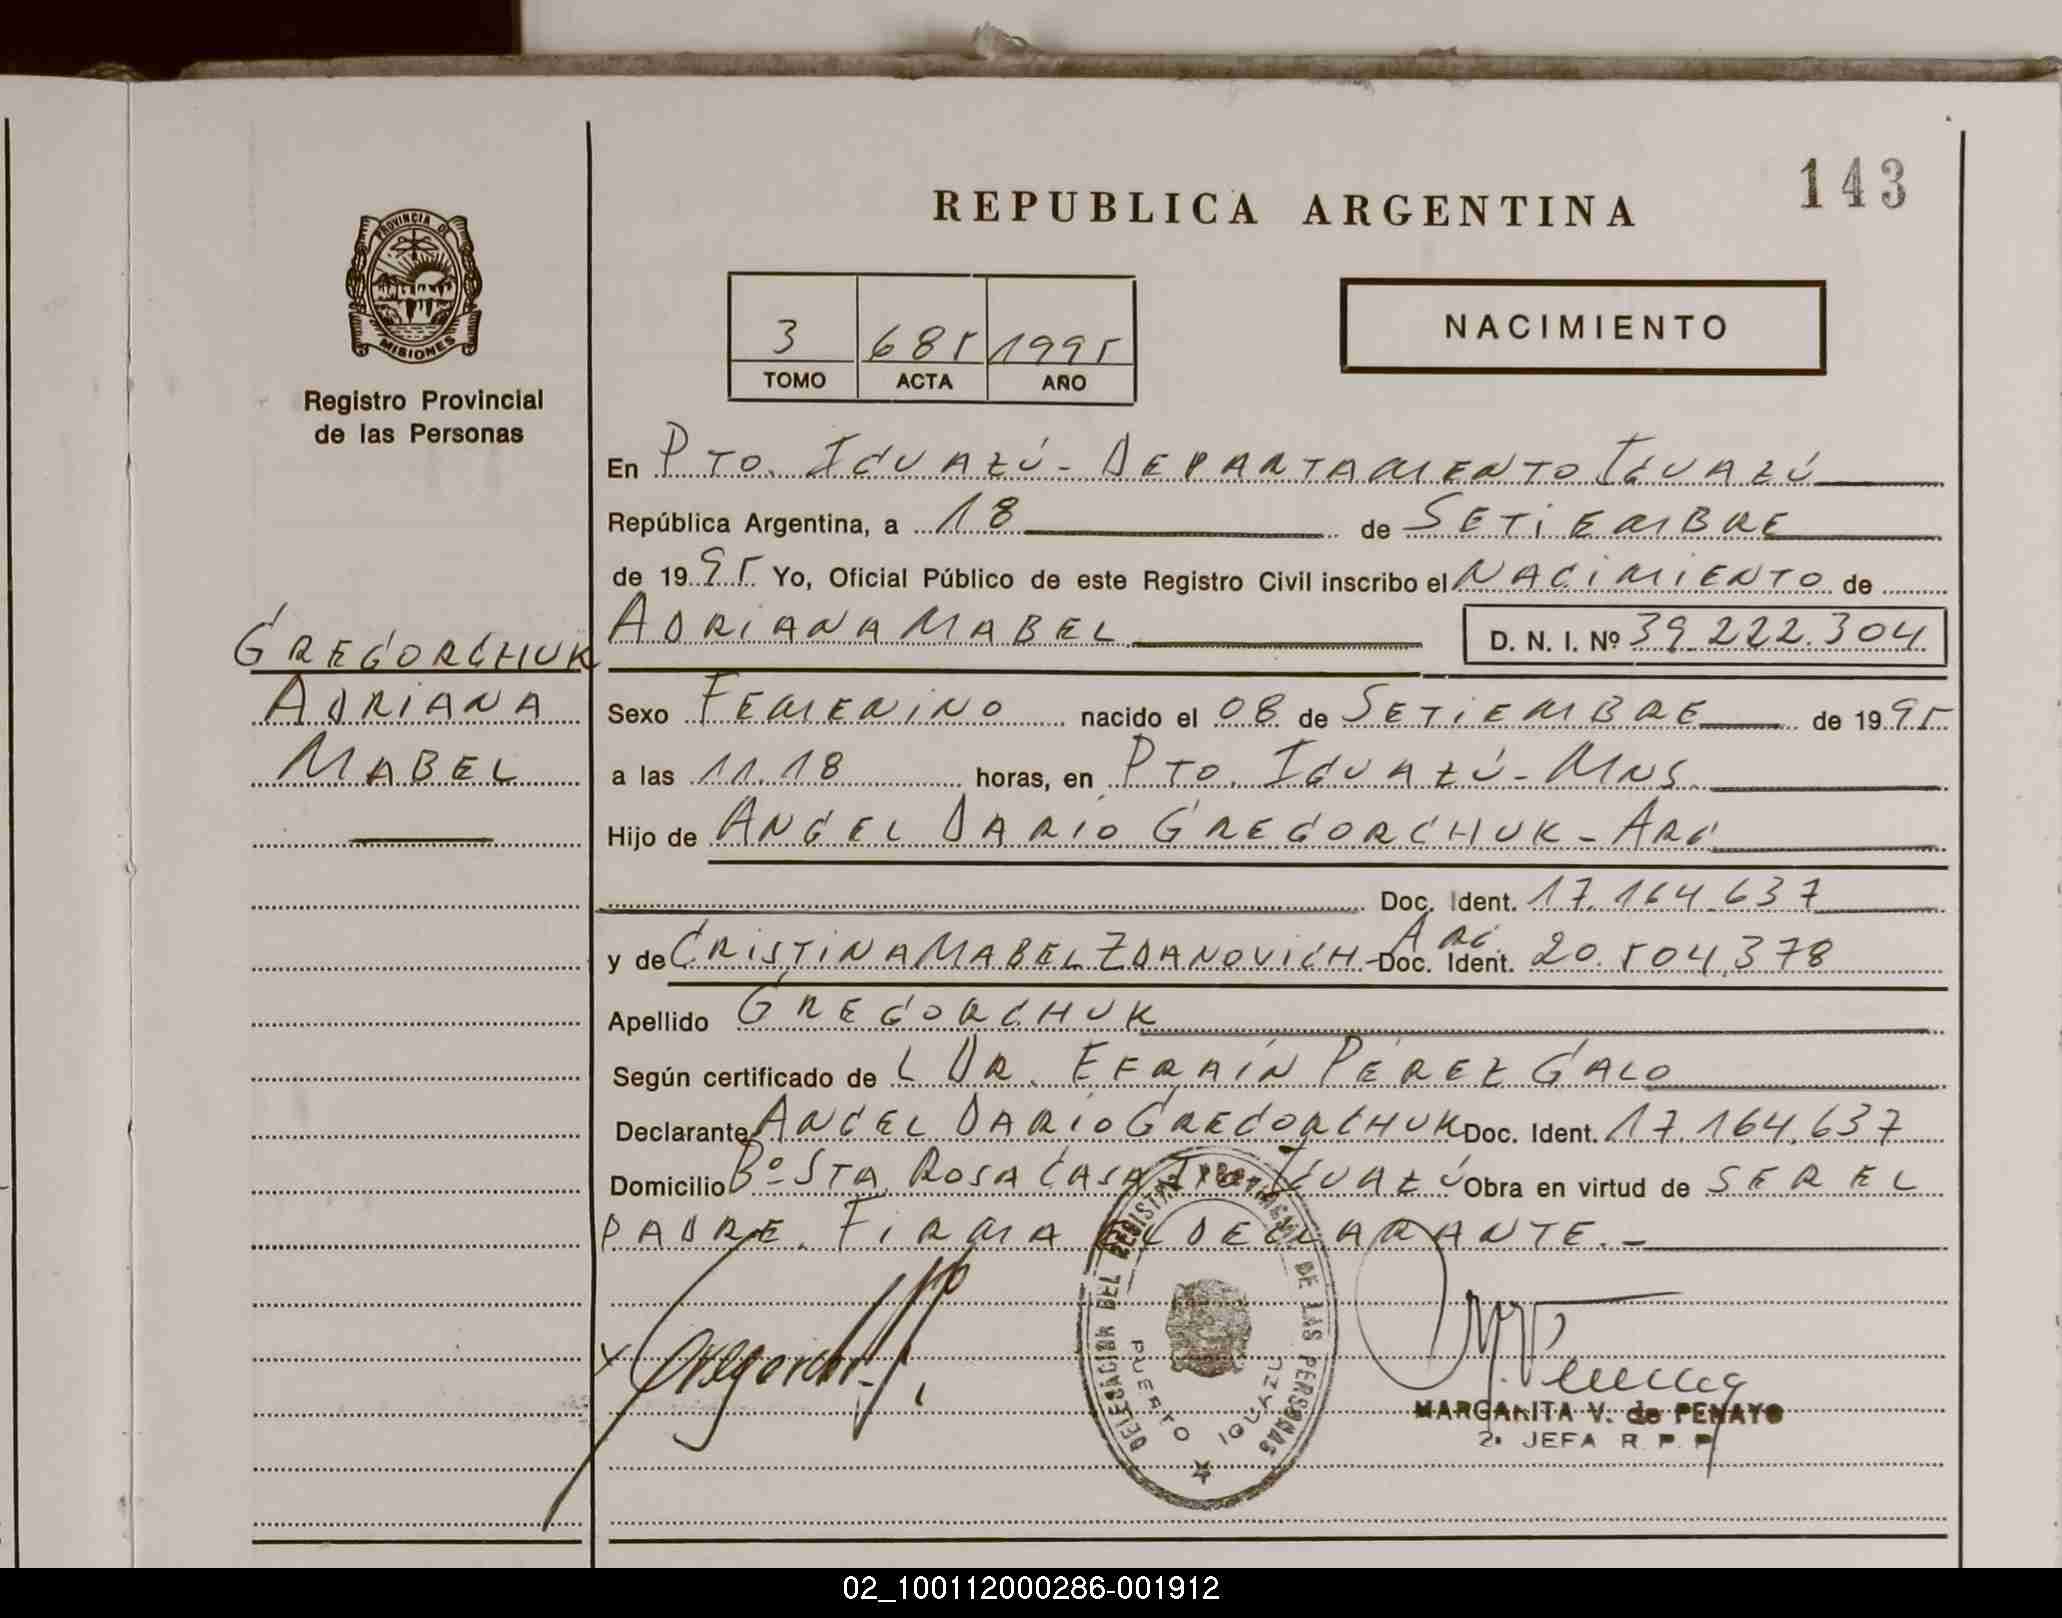 143
REPUBLICA ARGENTINA
PROVINCIA DE
MISIONES
Registro Provincial
de las Personas
3 685 1995
TOMO ACTA AÑO
NACIMIENTO
En PTO. IGUAZÚ - DEPARTAMENTO IGUAZÚ
República Argentina, a 18 de SETIEMBRE
de 1995 Yo, Oficial Público de este Registro Civil inscribo el NACIMIENTO de
GREGORCHUK
ADRIANA
MABEL
ADRIANA MABEL D. N. I. Nº 39.222.304
Sexo FEMENINO nacido el 08 de SETIEMBRE de 1995
a las 11.18 horas, en PTO. IGUAZÚ - MNS.
Hijo de ANGEL DARÍO GREGORCHUK - ARG
Doc. Ident. 17.164.637
y de CRISTINA MABEL ZDANOVICH - ARG. Doc. Ident. 20.504.378
Apellido GREGORCHUK
Según certificado de L DR. EFRAÍN PÉREZ GALO
Declarante ANGEL DARÍO GREGORCHUK Doc. Ident. 17.164.637
Domicilio Bº STA. ROSA CASA IGUAZÚ Obra en virtud de SER EL
PADRE. FIRMA EL DECLARANTE. -
DELEGACION DEL REGISTRO PROVINCIAL DE LAS PERSONAS
PUERTO IGUAZU
MARGARITA V. de PENAYO
2ª JEFA R. P. P.
02_100112000286-001912